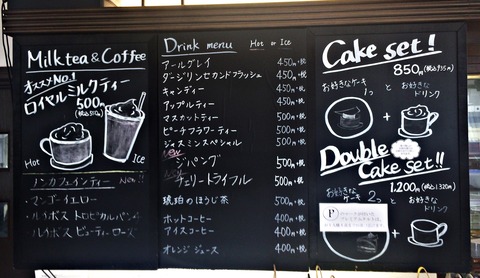 Milktea & Coffee
オススメNo.1
ロイヤルミルクティー
500円
Hot
Ice
ノンカフェインティー New!!
・マンゴーイエロー
・ルイボス トロピカルパンチ
・ルイボス ビューティーローズ
Drink menu Hot or Ice
アールグレイ 450円+税
ダージリンセカンドフラッシュ 450円+税
キャンディー 450円+税
アップルティー 450円+税
マスカットティー 500円+税
ピーチフラワーティー 500円+税
ジャスミンスペシャル 500円+税
ジパング 500円+税
チェリートライフル 500円+税
琥珀のほうじ茶 500円+税
ホットコーヒー 400円+税
アイスコーヒー 400円+税
オレンジジュース 400円+税
Cake set!
850円
お好きなケーキ 1つ と お好きな ドリンク
+
Double Cake set!!
1.200円(税込1320円)
お好きなケーキ 2つ と お好きな ドリンク
+
P